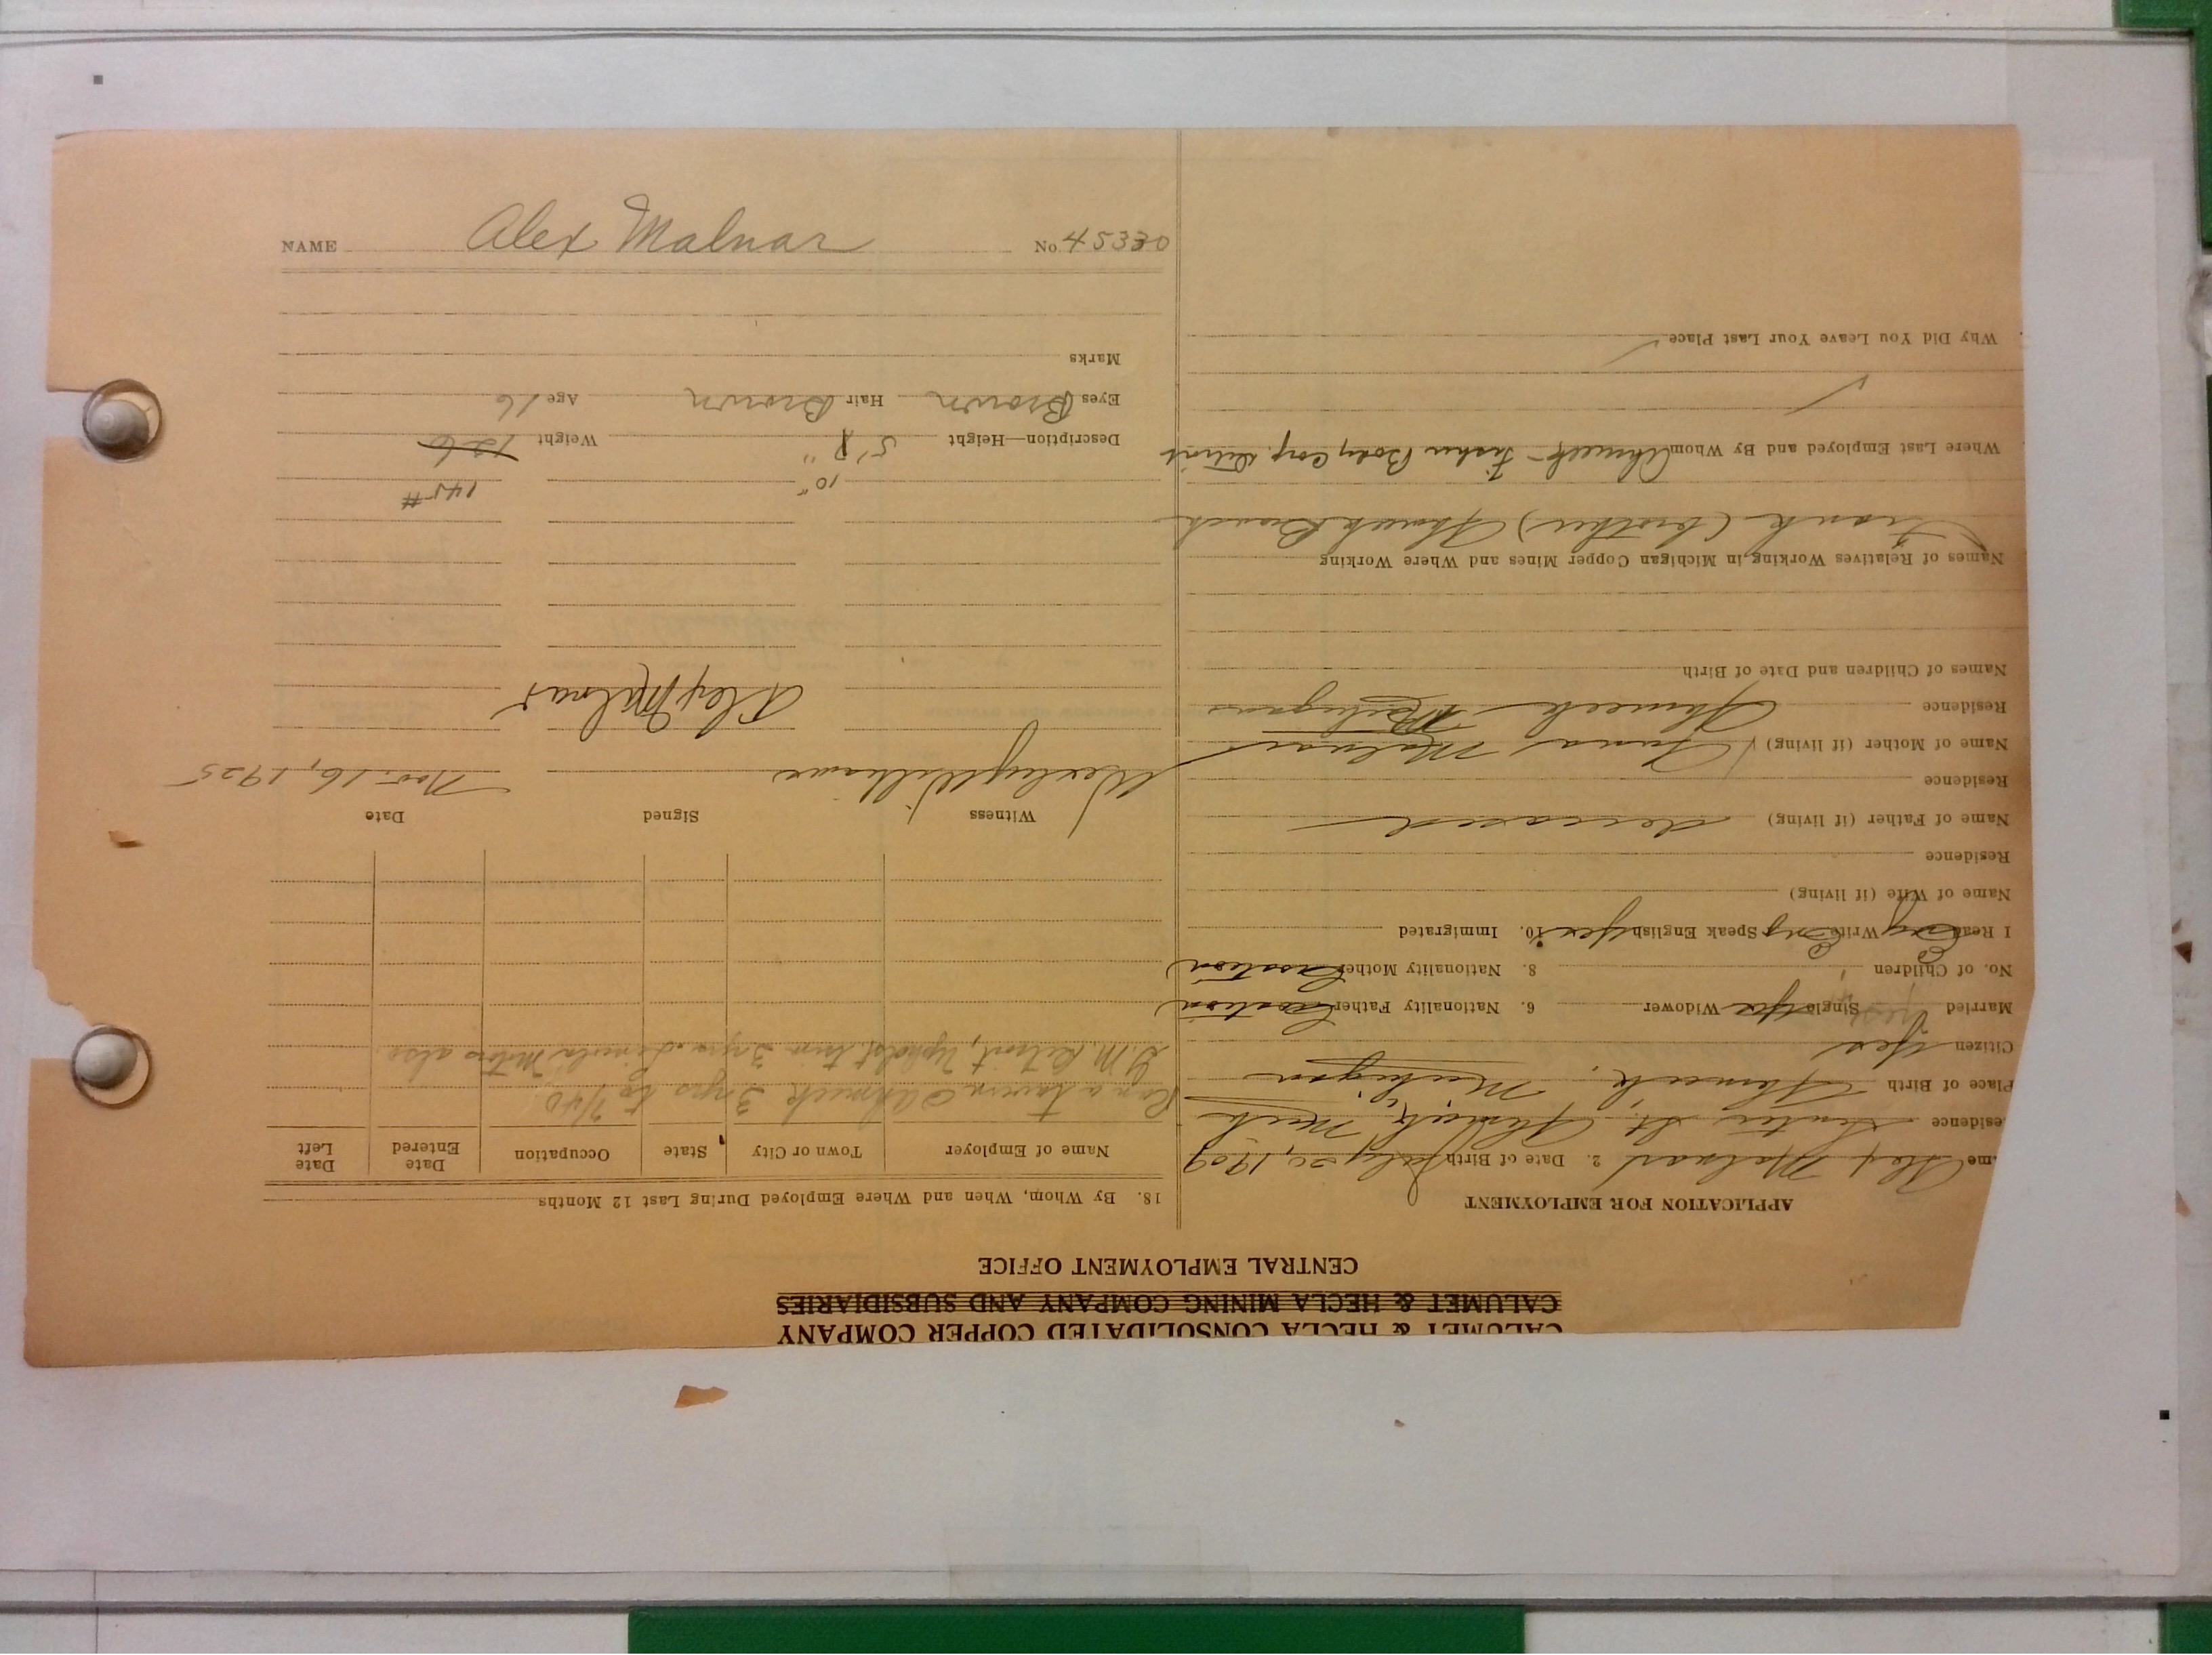 CALUMET & HECLA CONSOLIDATED COPPER COMPANY
CALUMET & HECLA MINING COMPANY AND SUBSIDIARIES
CENTRAL EMPLOYMENT OFFICE
APPLICATION FOR EMPLOYMENT
me Alex Malnar 2. Date of Birth July 20, 1909
esidence Senter St. Ahmeek, Mich
Place of Birth Ahmeek, Michigan
Citizen Yes
Married yes Single Yes Widower 6. Nationality Father Croatian
No. of Children 8. Nationality Mother Croatian
I Read Eng Write Eng Speak English Yes 10. Immigrated
Name of Wife (if living)
Residence
Name of Father (if living) deceased
Residence
Name of Mother (if living) Anna Malnar
Residence Ahmeek Michigan
Names of Children and Date of Birth
Names of Relatives Working in Michigan Copper Mines and Where Working
Frank (brother) Ahmeek Branch
Where Last Employed and By Whom Ahmeek - Fisher Body Corp. Detroit
Why Did You Leave Your Last Place
18. By Whom, When and Where Employed During Last 12 Months
Name of Employer Town or City State Occupation Date Entered Date Left
Ran a tavern @ Ahmeek 3 yrs to 7/40
G.M. Detroit, Upholst. trim 3 yrs. Lincoln Motors also.
Witness Signed Date
Wesley Williams Nov. 16, 1925
Alex Malnar
10" 145#
Description—Height 5' 8" Weight 126
Eyes Brown Hair Brown Age 16
Marks
NAME Alex Malnar No. 45330